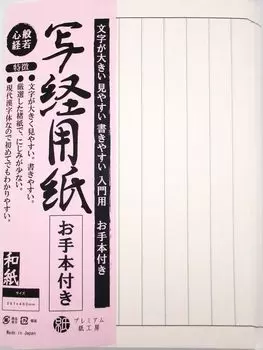 文字が大きい 見やすい 書きやすい 入門用 お手本付き
般若心経
写経用紙
お手本付き
特徴
●文字が大きく見やすい。書きやすい。
●厳選した楮紙で、にじみが少ない。
●現代漢字体なので初めてでもわかりやすい。
和紙
サイズ
Made in Japan
紙
プレミアム
紙工房